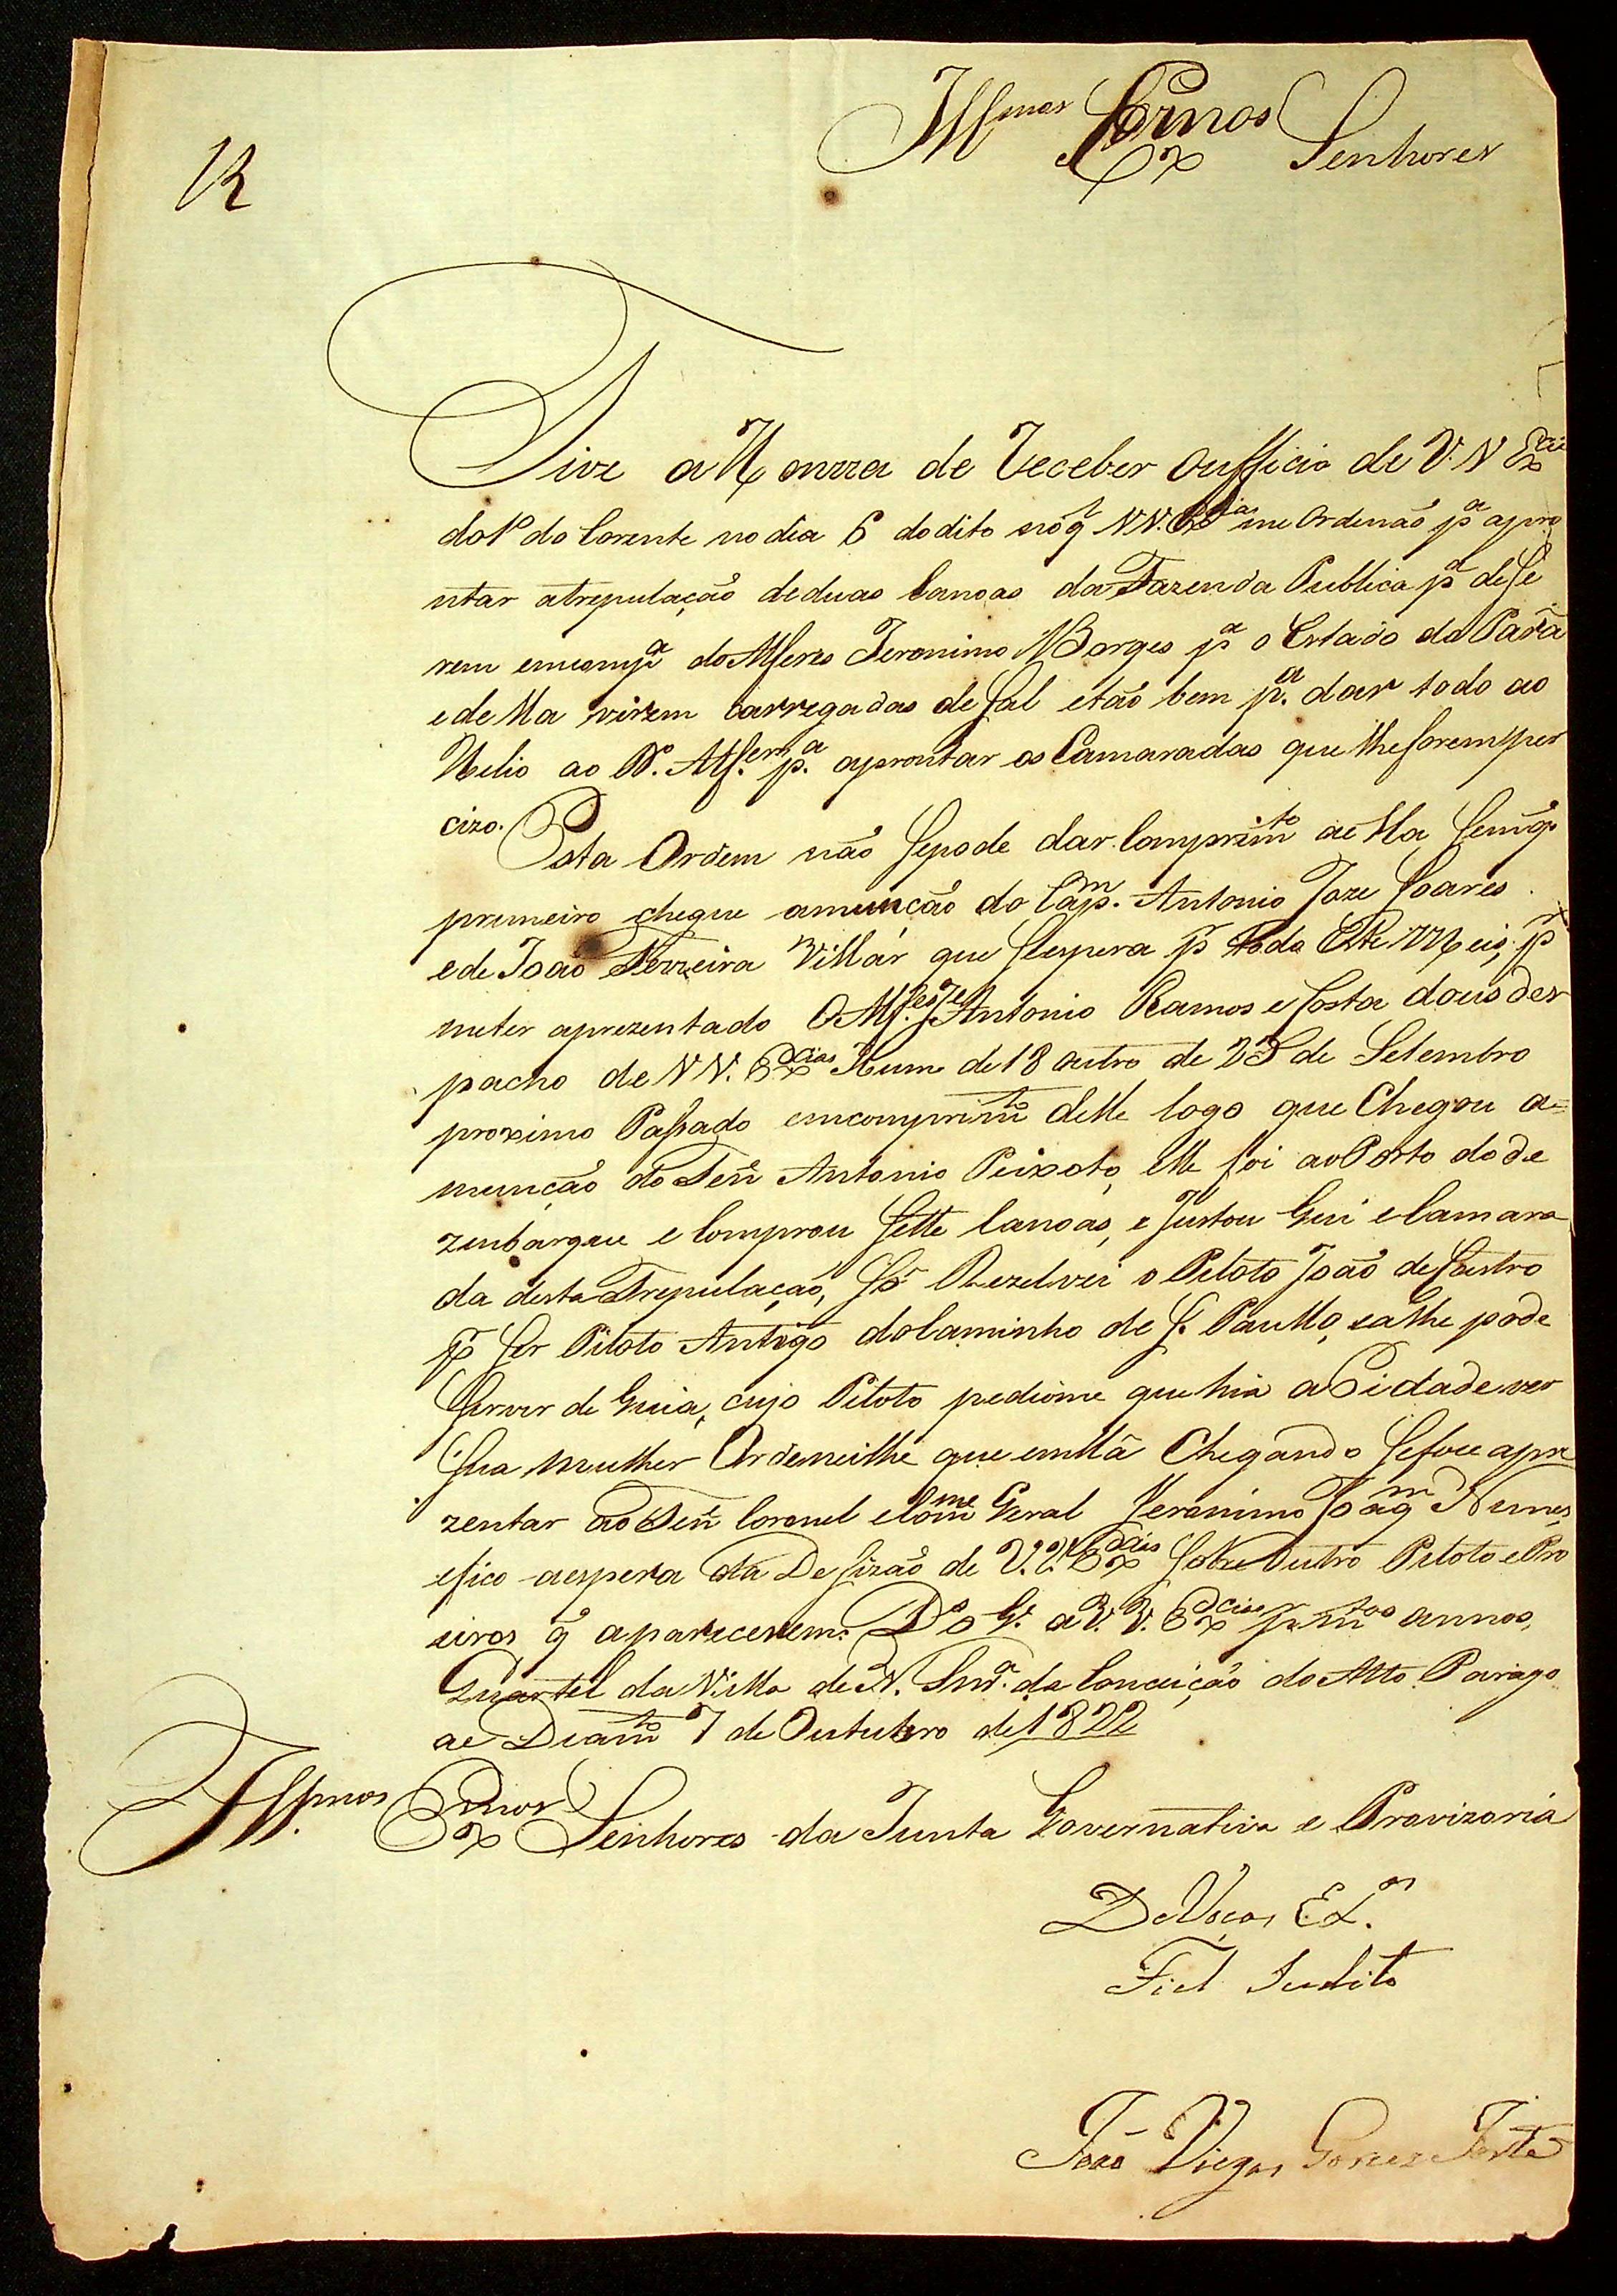 Illmos Exmos Senhores
R
Tive a Honrra de Receber ouffício de V.V. Exciã
do 1º do Corente no dia 6 do dito no q̃ VV. Excias me Ordenão pª apro
ntar atrepulação deduas Canoas da Fazenda Publica pª de se
rem emcompª do Alferes Jeronimo Borges pª o Estado do Pará
e de lla virem carregadas de Sal e tão bem pª. dar todo ao
Uselio ao D. Alferes pª. aprontar os Camaradas que lhe forem per
cizo. Esta Ordem não sepode dar Comprimto ae lla sem q̃
premeiro chegue a munção do Capm. Antonio Joze Soares
e de João Ferreira Villar que Sespera p̃ todo Este Meis, p̃
meter aprezentado O Alfes Je Antonio Ramos e Costa dous des
pacho de VV. Excias Hum de 18 outro de 28 de Setembro
proximo Passado emcomprimto delle logo que Chegou a=
munção do Tene Antonio Peixoto, elle foi ao Porto do de
zenbarque e Comprou Sette Canoas, e Justou Gui e Camara
da desta Trepulação, Só Rezelvei o Piloto João de Castro
p̃ Ser Piloto Antigo do Caminho de S. Paullo, e a lhe pode
Server de Guia, cujo Piloto pediome que hia a Cidade ver
Sua mulher Ordeneilhe que em llá Chegando Sefoce apre
zentar ao Tene Coronel e Come Geral Jeronimo Joaqm Nunes,
e fico a espera da Desizão de V.V. Excias Sobre Outro Piloto e Pro
eiros q̃ aparecerem. Ds Ge. a V. V. Excias pr mtos annos,
Quartel da Villa de N. Snrª. da Conceição do Alto Parago
ae Diamto 7 de Outubro de 1822
Illmos Exmos Senhores da Junta Governativa e Provizoria
De Vocas Exas.
Fiel Sudito
João Viegas Fortes